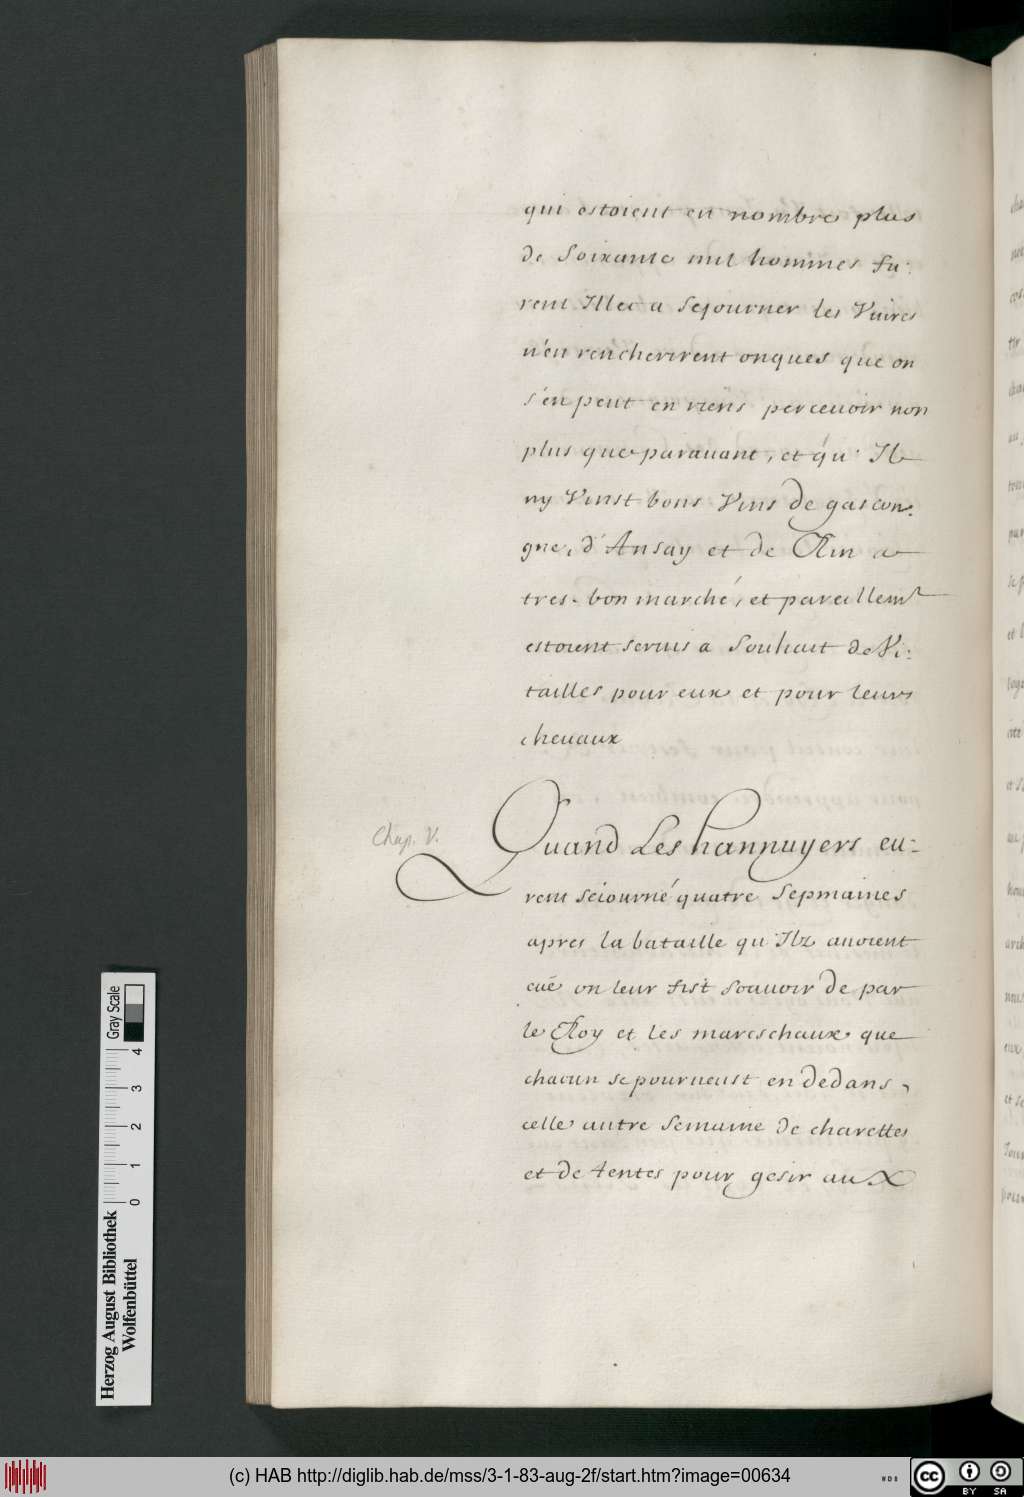 qui estoient en nombre plus
de Soixante mil hommes fu-
rent Illec a Sejourner les Viures
n'en rencherirent onques que on
s'en peut en riens perceuoir non
plus que parauant, et qu' Il
ny Vinst bons Vins de gascon-
gne, d'Ansay et de Rin a
tres-bon marché, et pareillemt
estoient seruis a Souhait de Vi-
tailles pour eux et pour leurs
cheuaux
Chap. V.
Quand Les hannuyers eu-
rent seiourné quatre Sepmaines
apres la bataille qu'Ilz auoient
eue on leur fist Scauoir de par
le Roy et les mareschaux que
chacun se pourueust en dedans
celle autre Semaine de charettes
et de tentes pour gesir aux
Herzog August Bibliothek
Wolfenbüttel
0 1 2 3 4
Gray Scale
(c) HAB http://diglib.hab.de/mss/3-1-83-aug-2f/start.htm?image=00634
WDB
cc BY SA